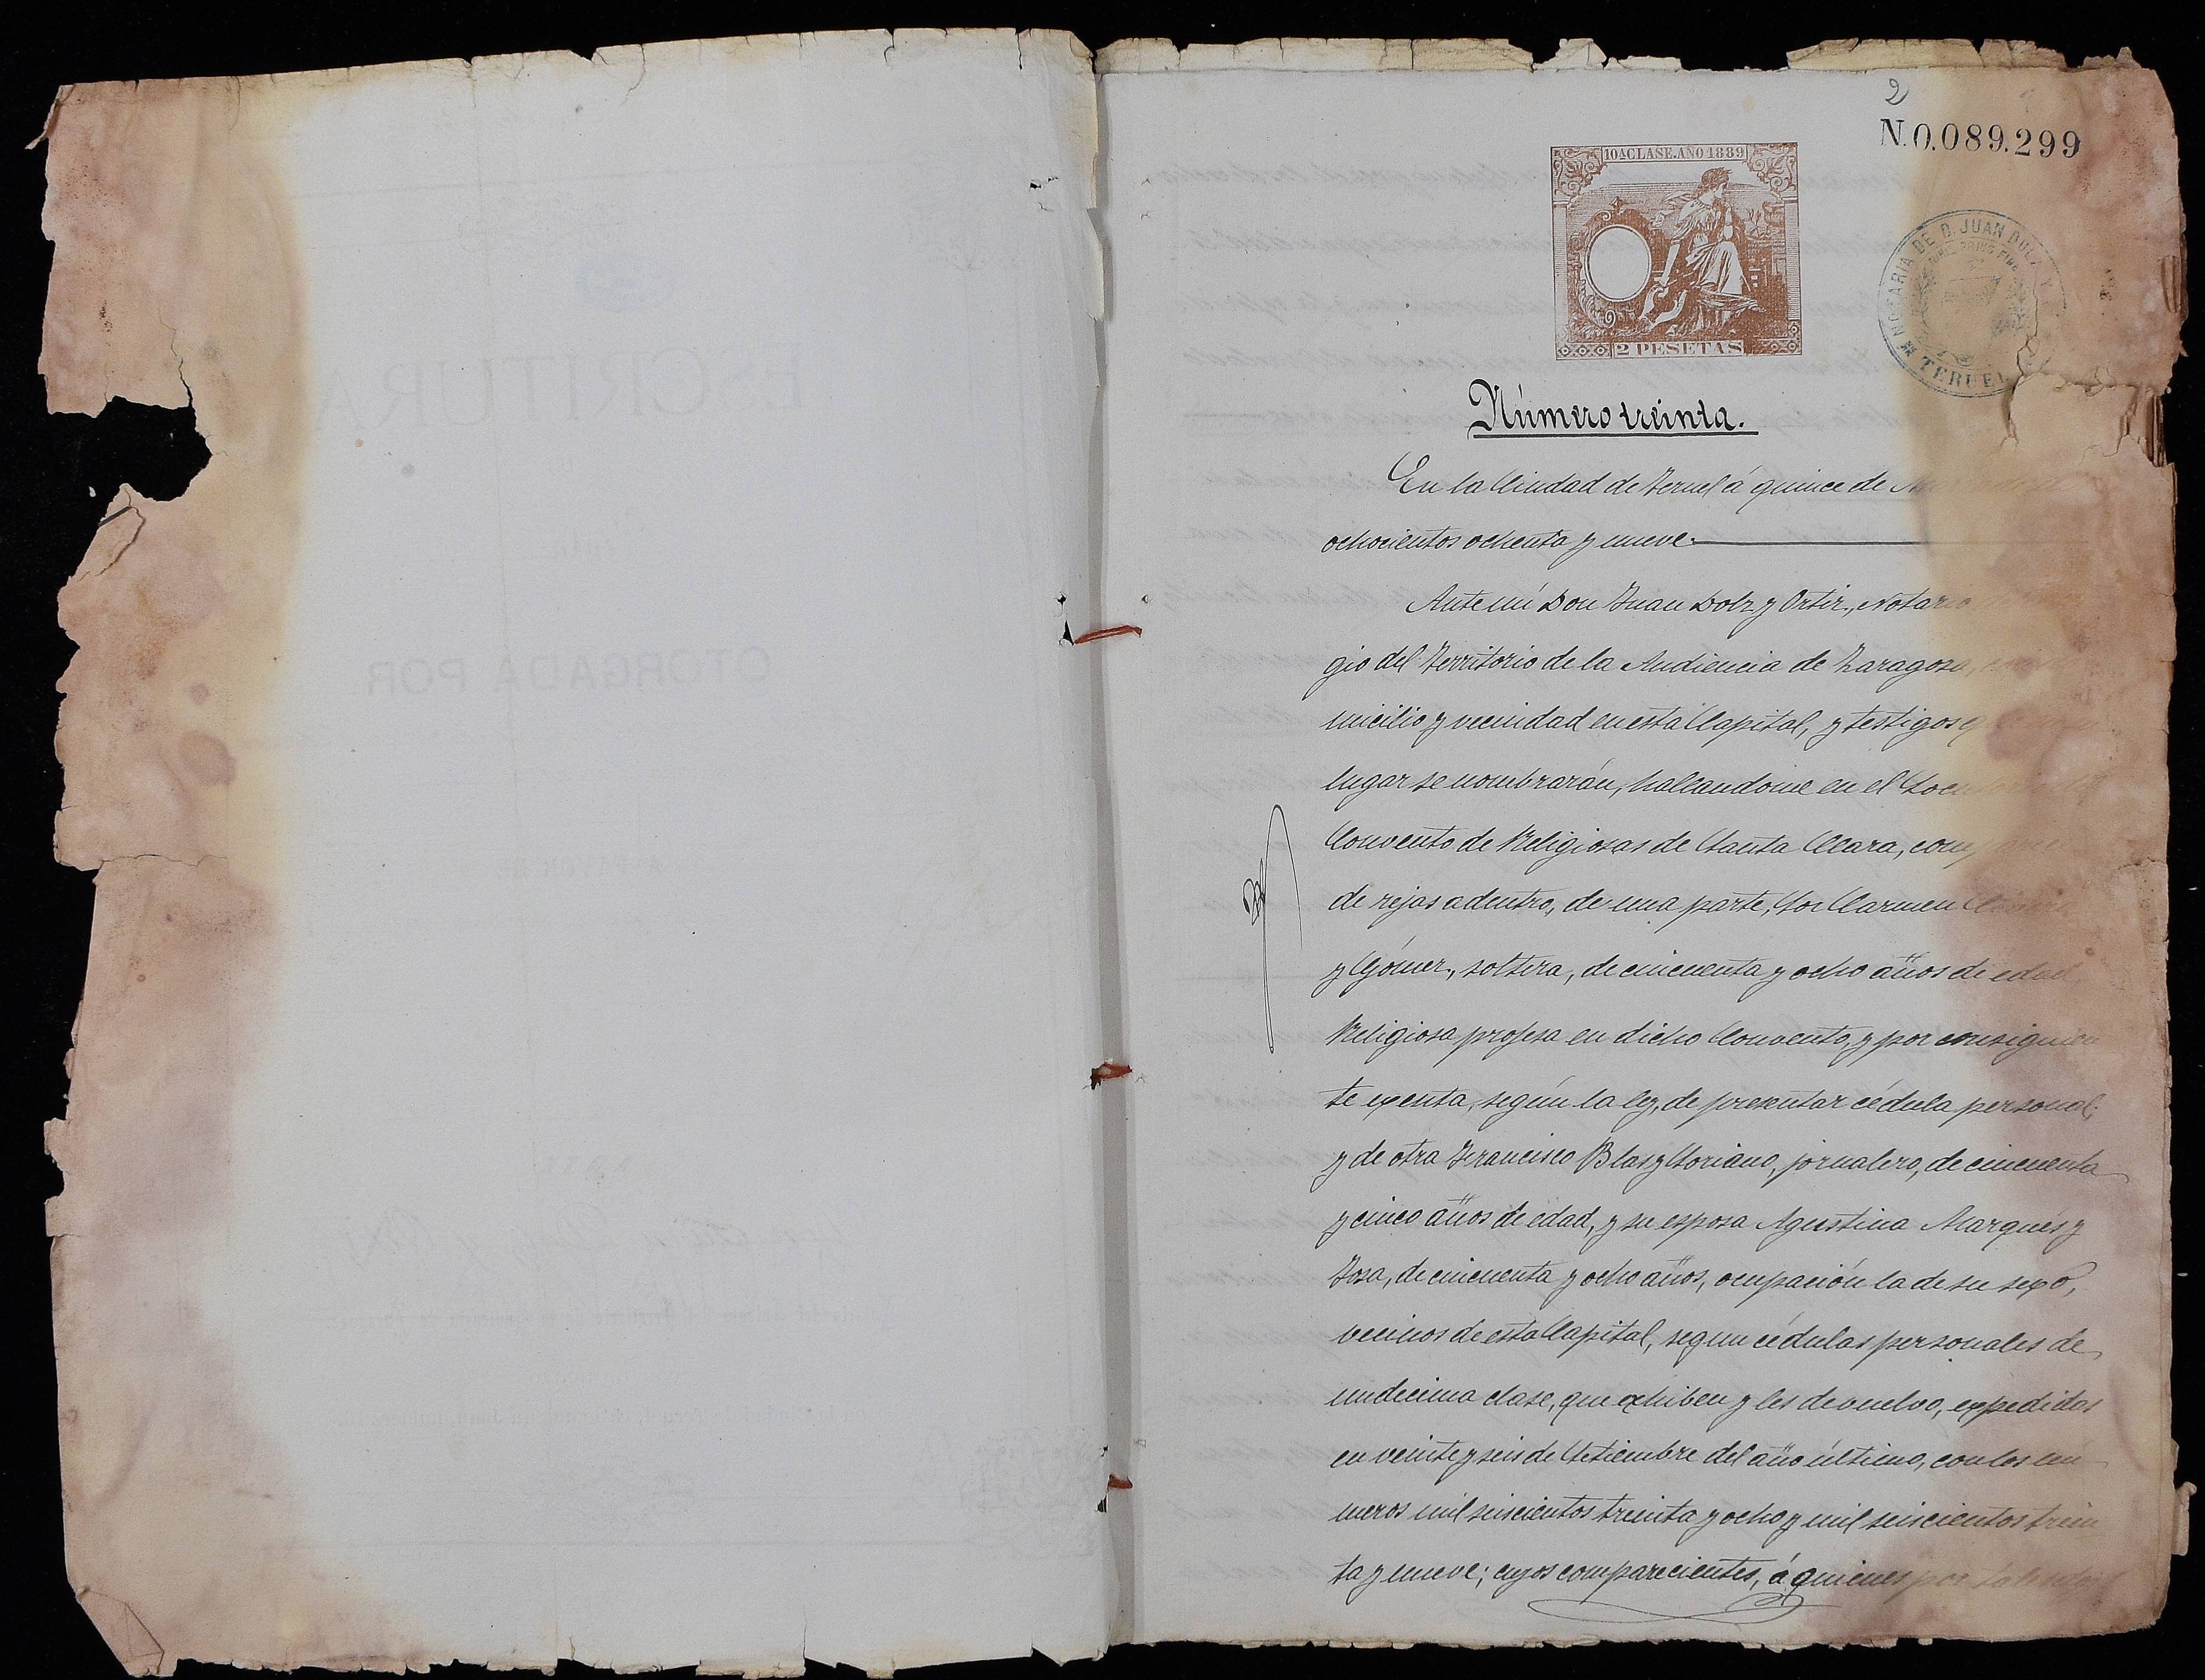 2
N.0.089.299
10ª CLASE. AÑO 1889
2 PESETAS
NOTARIA DE D. JUAN DOLZ
TERUEL
Número treinta.
En la Ciudad de Teruel á quince de
ochocientos ochenta y nueve.
Ante mí Don Juan Dolz y Ortiz, Notario
gio del Territorio de la Audiencia de Zaragoza,
micilio y vecindad en esta Capital, y testigos q
lugar se nombrarán, hallandome en el Locu
Convento de Religiosas de Santa Clara, com
de rejas adentro, de una parte, Sor Carmen
y Gómez, soltera, de cincuenta y ocho años de edad,
Religiosa profesa en dicho Convento, y por consiguien
te exenta, según la ley, de presentar cédula personal;
y de otra Francisco Blas y Soriano, jornalero, de cincuenta
y cinco años de edad, y su esposa Agustina Marqués y
Josa, de cincuenta y ocho años, ocupación la de su sexo,
vecinos de esta Capital, segun cédulas personales de
undecima clase, que exhiben y les devuelvo, expedidas
en veinte y seis de Setiembre del año último, con los nú
meros mil seiscientos treinta y ocho y mil seiscientos trein
ta y nueve; cuyos comparecientes, á quienes por
ESCRITURA
OTORGADA POR